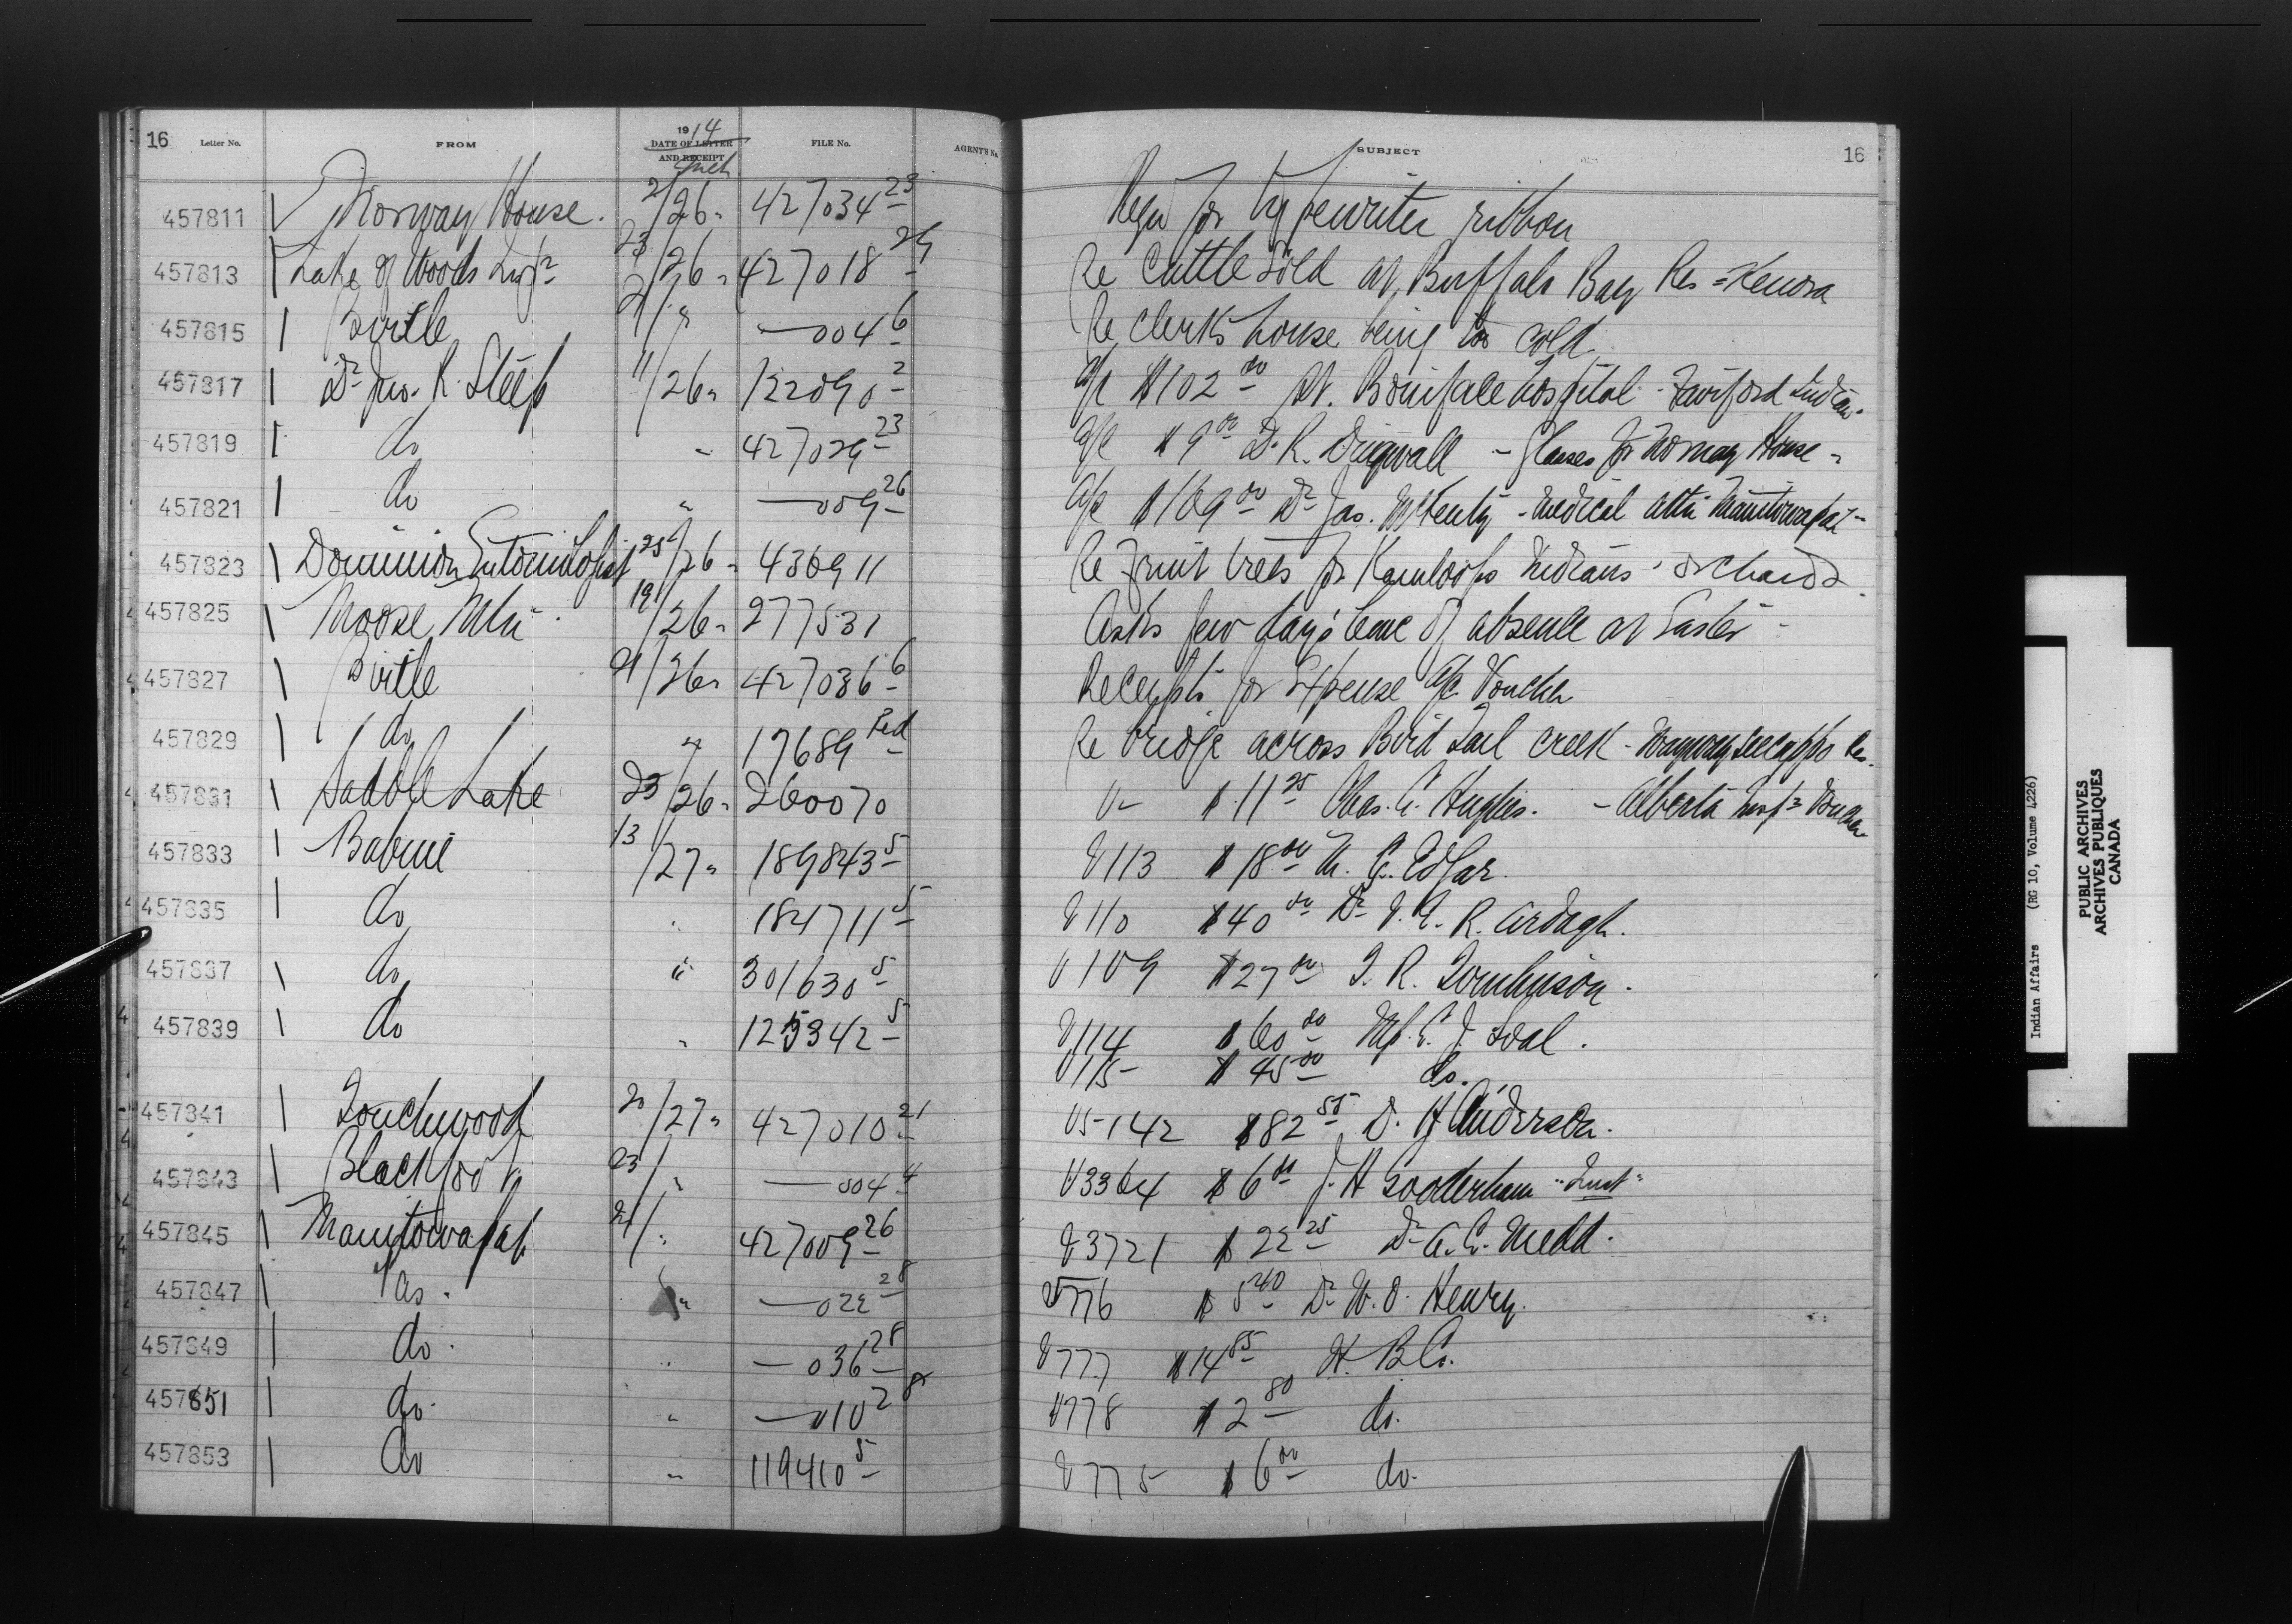 16 Letter No. FROM 1914 DATE OF LETTER AND RECEIPT Mch FILE No. AGENT'S No. SUBJECT 16
457811 Norway House. 2/26 " 427034 23 Reqn for typewriter ribbon
457813 Lake of Woods Insp r 23/26 " 427018 Re Cattle sold at Buffalo Bay Res = Kenora
457815 Birtle 21/ " —004 6 Re Clerks house being sold
457817 Dr Jno. R. Steep 11/26 " 122090 2 a/c $102 00 St. Boniface hospital - Fairford Indian
457819 do " 427029 23 a/c $9 00 D. R. Dingwall - Glasses for Norway House -
457821 do " —009 26 a/c $169 00 Dr Jas. McKenty - medical attn Manitowapah -
457823 Dominion Entomologist 25/26 " 436911 Re Fruit trees for Kamloops Indians' orchards
457825 Moose Mtn 19/26 " 277531 Asks few day's leave of absence at Easter -
457827 Birtle 21/26 " 427036 6 Receipts for Expense a/c Voucher
457829 do " 17689 Red Re bridge across Bird Tail creek - Waywayseecappo Res.
457831 Saddle Lake 23/26 " 260070 V- $11 25 Chas. C. Hughes. - Alberta Insp r Voucher
457833 Babine 13/27 " 189843 5 V113 $18 00 Edgar.
457835 do " 184711 5 V110 $40 00 Dr R. Ardagh.
457837 do " 301630 5 V109 $27 00 R. Tomlinson.
457839 do " 125342 5 V114 $60 00 E. J. Soal.
V115 - $45 00 do.
457841 Touchwood 20/27 " 427010 21 V5-142 $82 55 D. H. Anderson.
457843 Blackfoot 23/ " —004 4 V3364 $6 00 J. H Gooderham
457845 Manitowapah 21/ " 427009 26 V3721 $22 25 Dr A. E. Medd.
457847 do. " —022 28 V776 $5 40 Dr W. O. Henry.
457849 do. " —036 28 V777 $14 85 H. B. Co.
457851 do. " —010 28 V778 $2 80 do.
457853 do " 119410 5 V775 $6 00 do.
Indian Affairs (RG 10, Volume 4226)
PUBLIC ARCHIVES
ARCHIVES PUBLIQUES
CANADA